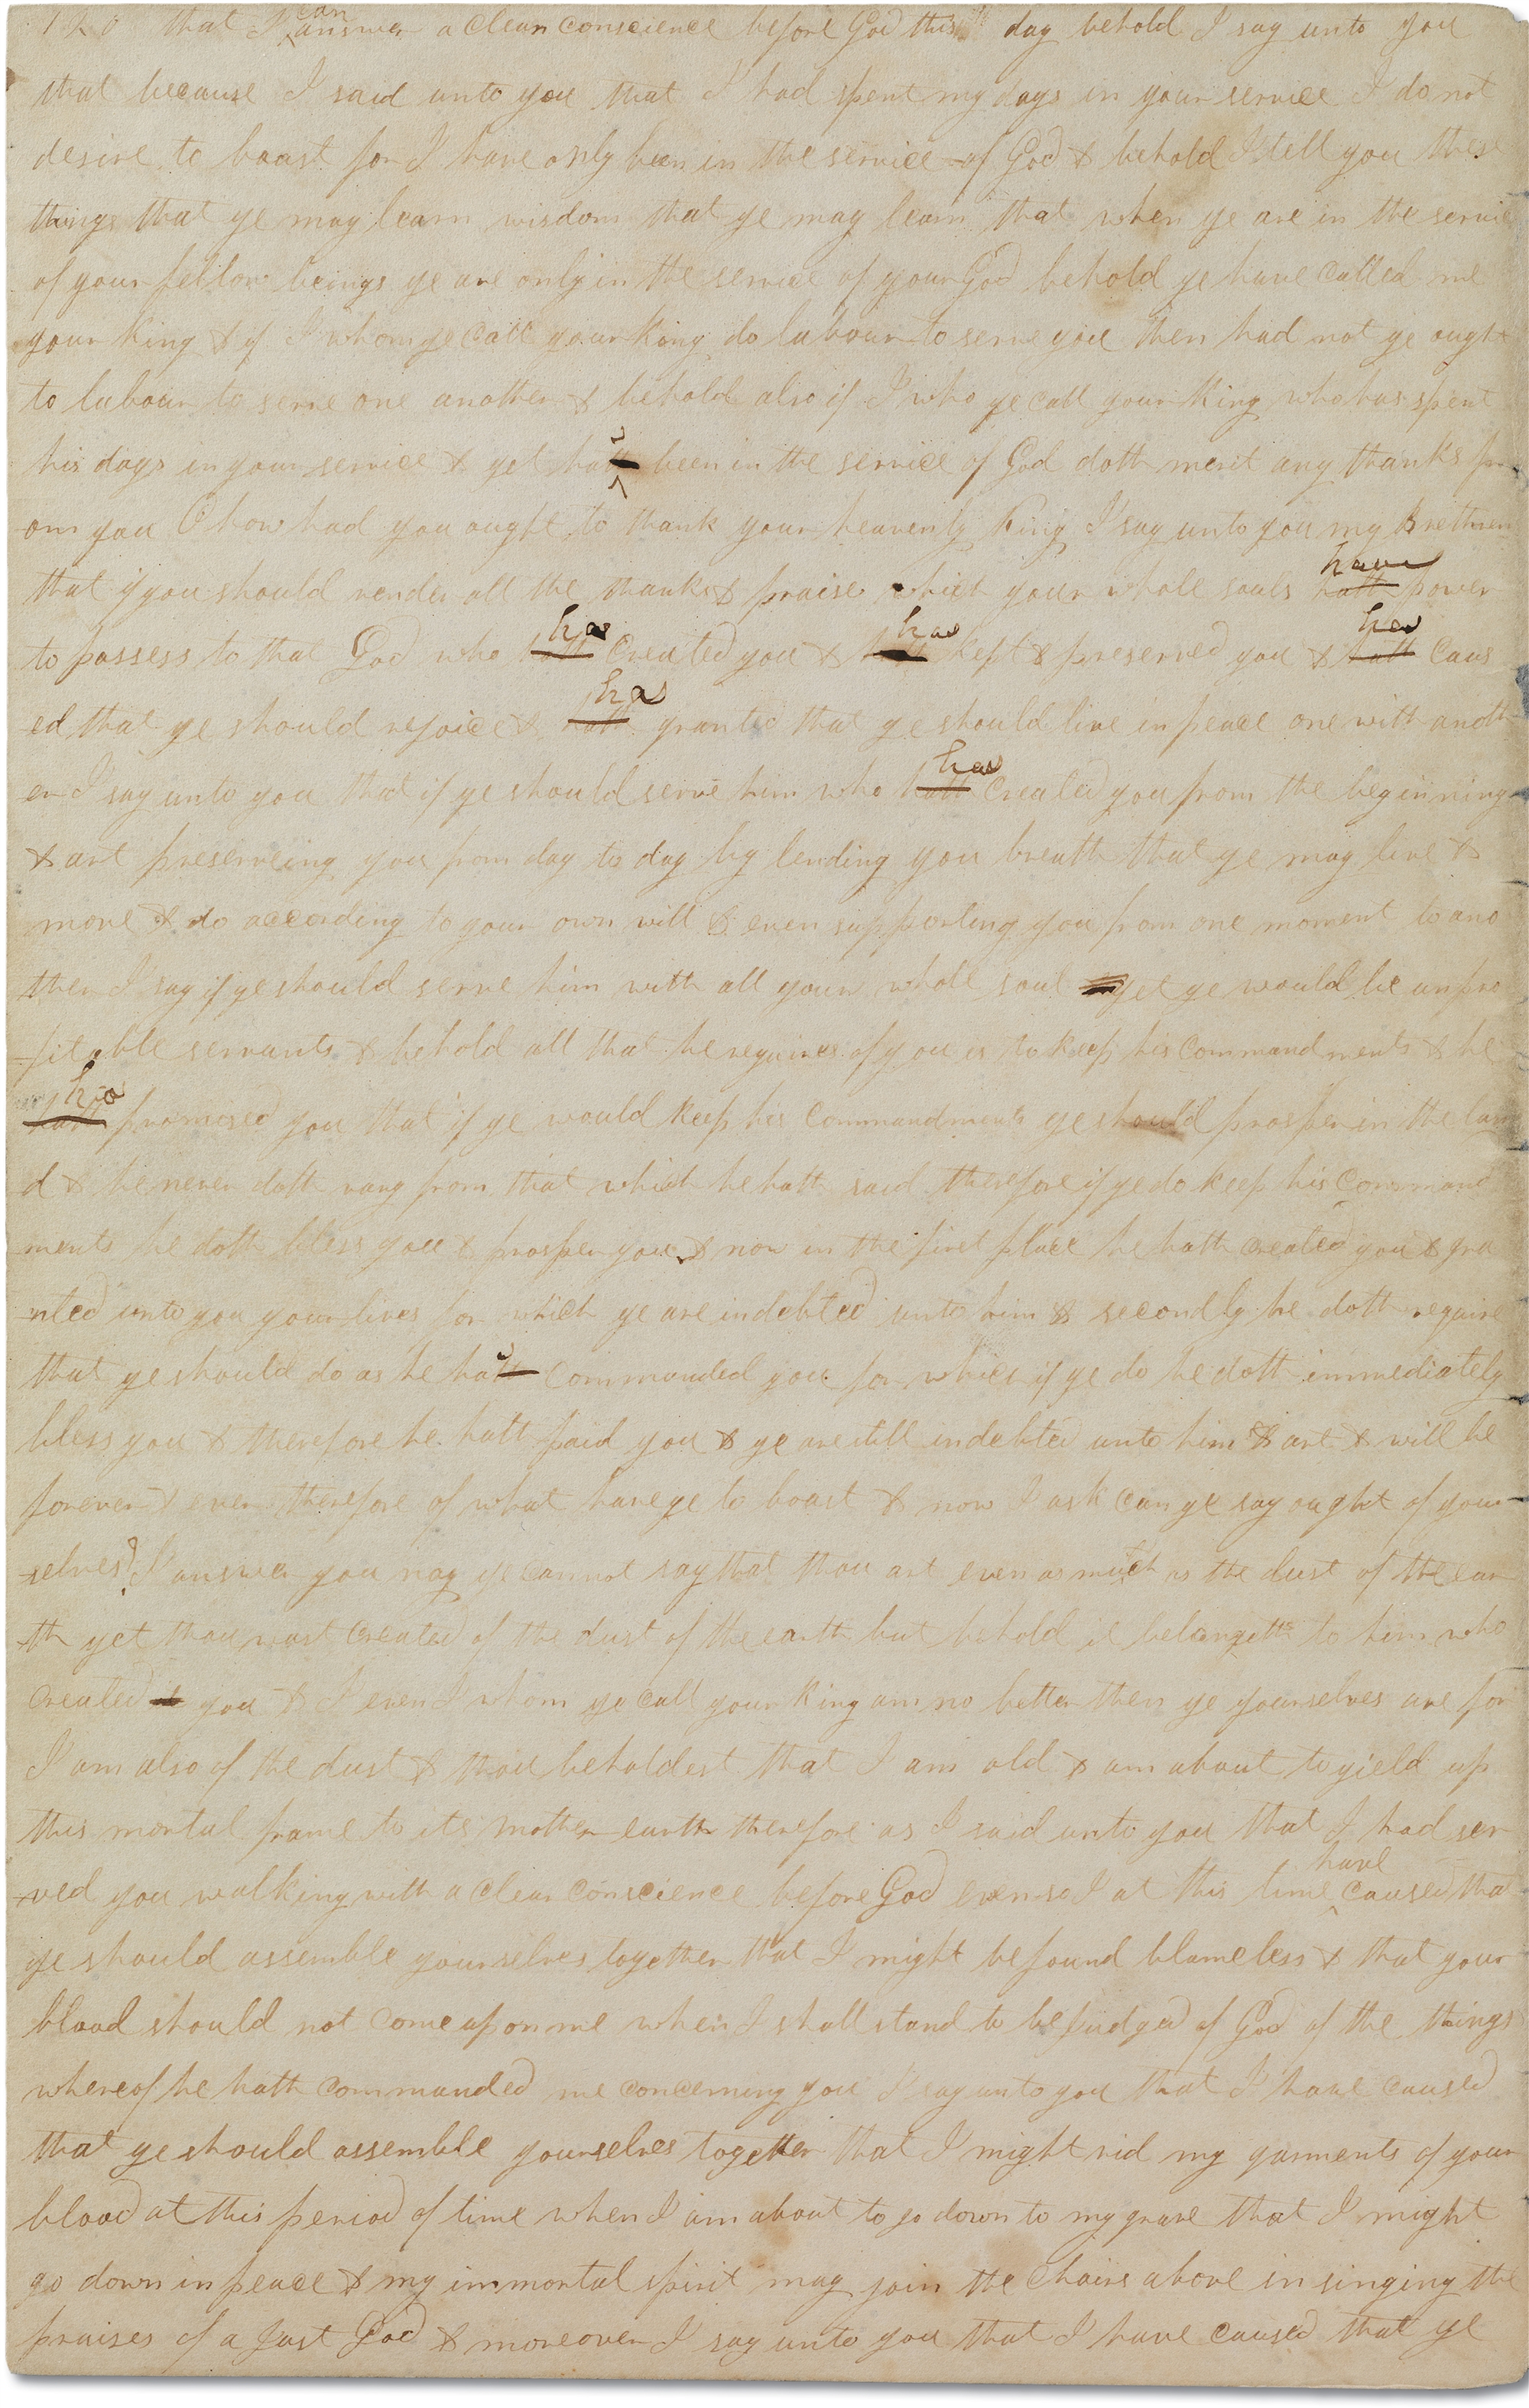 120 that I can answer a clean conscience before God this day behold I say unto you
that because I said unto you that I had spent my days in your service I do not
desire to boast for I have only been in the service of God & behold I tell you these
things that ye may learn wisdom that ye may learn that when ye are in the service
of your fellow beings ye are only in the service of your God behold ye have called me
your King & if I whom ye call your King do labour to serve you then had not ye ought
to labour to serve one another & behold also if I who ye call your King who has spent
his days in your service & yet hath been in the service of God doth merit any thanks fr
om you O how had you ought to thank your heavenly King I say unto you my Brethren
that if you should render all the thanks & praise which your whole souls hath have power
to possess to that God who hath has created you & hath has kept & preserved you & hath has caus
ed that ye should rejoice & hath has granted that ye should live in peace one with anoth
er I say unto you that if ye should serve him who hath has created you from the beginning
& art preserveing you from day to day by lending you breath that ye may live &
move & do according to your own will & even supporting you from one moment to ano
ther I say if ye should serve him with all your whole soul yet ye would be unpro
fitable servants & behold all that he requires of you is to keep his commandments & he
hath has promised you that if ye would keep his commandments ye should prosper in the lan
d & he never doth vary from that which he hath said therefore if ye do keep his command
ments he doth bless you & prosper you & now in the first place he hath created you & gra
nted unto you your lives for which ye are indebted unto him & secondly he doth require
that ye should do as he hath commanded you for which if ye do he doth immediately
bless you & therefore he hath paid you & ye are still indebted unto him & art & will be
forever & ever therefore of what have ye to boast & now I ask can ye say ought of your
selves? I answer you nay ye cannot say that thou art even as much as the dust of the ear
th yet thou wast created of the dust of the earth but behold it belongeth to him who
created you & I even I whom ye call your King am no better then ye yourselves are for
I am also of the dust & thou beholdest that I am old & am about to yield up
this mortal frame to its mother earth therefore as I said unto you that I had ser
ved you walking with a clear conscience before God even so I at this time have caused tha
ye should assemble yourselves together that I might be found blameless & that your
blood should not come upon me when I shall stand to be judged of God of the things
whereof he hath commanded me concerning you I say unto you that I have caused
that ye should assemble yourselves together that I might rid my garments of your
blood at this period of time when I am about to go down to my grave that I might
go down in peace & my immortal spirit may join the choirs above in singing the
praises of a just God & moreover I say unto you that I have caused that ye